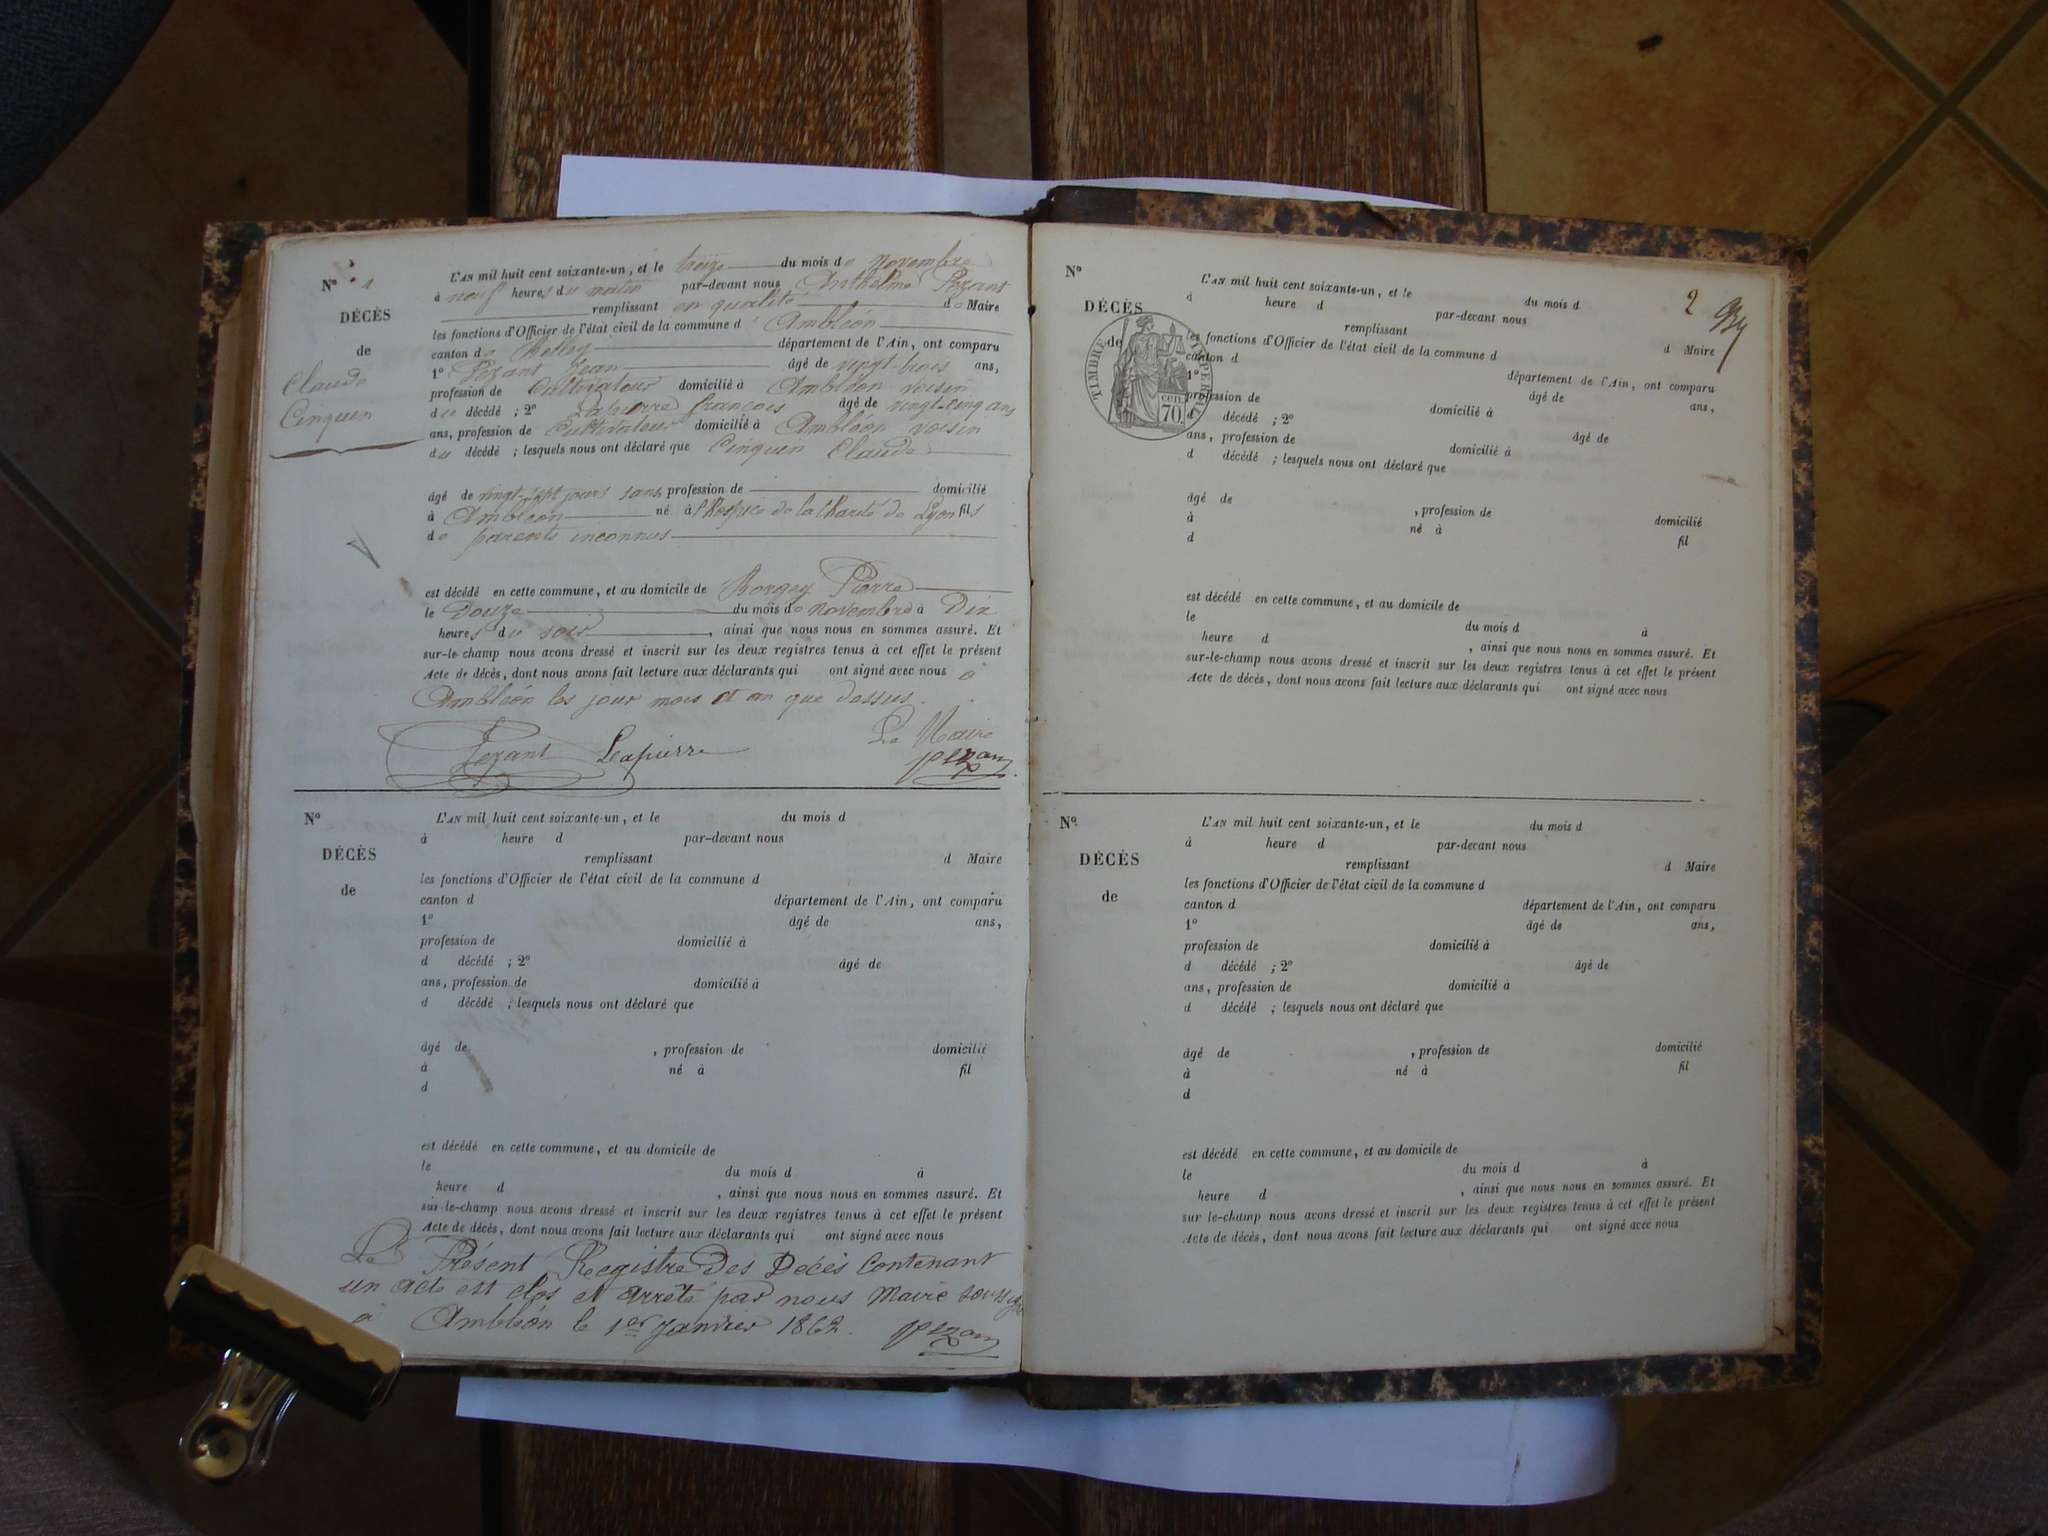 N° 1
DÉCÈS
de
Claude
Cinquen
L'AN mil huit cent soixante-un, et le treize du mois de novembre
à neuf heures du matin par-devant nous Anthelme Pezant
remplissant en qualité de Maire
les fonctions d'Officier de l'état civil de la commune d'Ambléon
canton de Belley département de l'Ain, ont comparu
1° Pezant Jean âgé de vingt-trois ans,
profession de Cultivateur domicilié à Ambléon voisin
du décédé ; 2° Lapierre françois âgé de vingt-cinq ans
ans, profession de Cultivateur domicilié à Ambléon voisin
du décédé ; lesquels nous ont déclaré que Cinquen Claude
âgé de vingt-sept jours sans profession de domicilié
à Ambléon né à l'hospice de la Charité de Lyon fils
de parents inconnus
est décédé en cette commune, et au domicile de Borgey Pierre
le Douze du mois de novembre à Dix
heures du soir, ainsi que nous nous en sommes assuré. Et
sur-le-champ nous avons dressé et inscrit sur les deux registres tenus à cet effet le présent
Acte de décès, dont nous avons fait lecture aux déclarants qui ont signé avec nous à
Ambléon les jour mois et an que dessus.
Le Maire
Pezant Lapierre pezan
N°
DÉCÈS
de
L'AN mil huit cent soixante-un, et le du mois d
à heure d par-devant nous
remplissant d Maire
les fonctions d'Officier de l'état civil de la commune d
canton d département de l'Ain, ont comparu
1° âgé de ans,
profession de domicilié à
d décédé ; 2° âgé de
ans, profession de domicilié à
d décédé ; lesquels nous ont déclaré que
âgé de , profession de domicilié
à né à fil
d
est décédé en cette commune, et au domicile de
le du mois d à
heure d , ainsi que nous nous en sommes assuré. Et
sur-le-champ nous avons dressé et inscrit sur les deux registres tenus à cet effet le présent
Acte de décès, dont nous avons fait lecture aux déclarants qui ont signé avec nous
Le Présent Registre Des Décès Contenant
un acte est clos et arrêté par nous Maire soussigné
à Ambléon le 1er Janvier 1862. pezan
2
N°
DÉCÈS
de
TIMBRE IMPERIAL
70 cen.
L'AN mil huit cent soixante-un, et le du mois d
à heure d par-devant nous
remplissant d Maire
les fonctions d'Officier de l'état civil de la commune d
canton d département de l'Ain, ont comparu
1° âgé de ans,
profession de domicilié à
d décédé ; 2° âgé de
ans, profession de domicilié à
d décédé ; lesquels nous ont déclaré que
âgé de , profession de domicilié
à né à fil
d
est décédé en cette commune, et au domicile de
le du mois d à
heure d , ainsi que nous nous en sommes assuré. Et
sur-le-champ nous avons dressé et inscrit sur les deux registres tenus à cet effet le présent
Acte de décès, dont nous avons fait lecture aux déclarants qui ont signé avec nous
N°
DÉCÈS
de
L'AN mil huit cent soixante-un, et le du mois d
à heure d par-devant nous
remplissant d Maire
les fonctions d'Officier de l'état civil de la commune d
canton d département de l'Ain, ont comparu
1° âgé de ans,
profession de domicilié à
d décédé ; 2° âgé de
ans, profession de domicilié à
d décédé ; lesquels nous ont déclaré que
âgé de , profession de domicilié
à né à fil
d
est décédé en cette commune, et au domicile de
le du mois d à
heure d , ainsi que nous nous en sommes assuré. Et
sur le-champ nous avons dressé et inscrit sur les deux registres tenus à cet effet le présent
Acte de décès, dont nous avons fait lecture aux déclarants qui ont signé avec nous